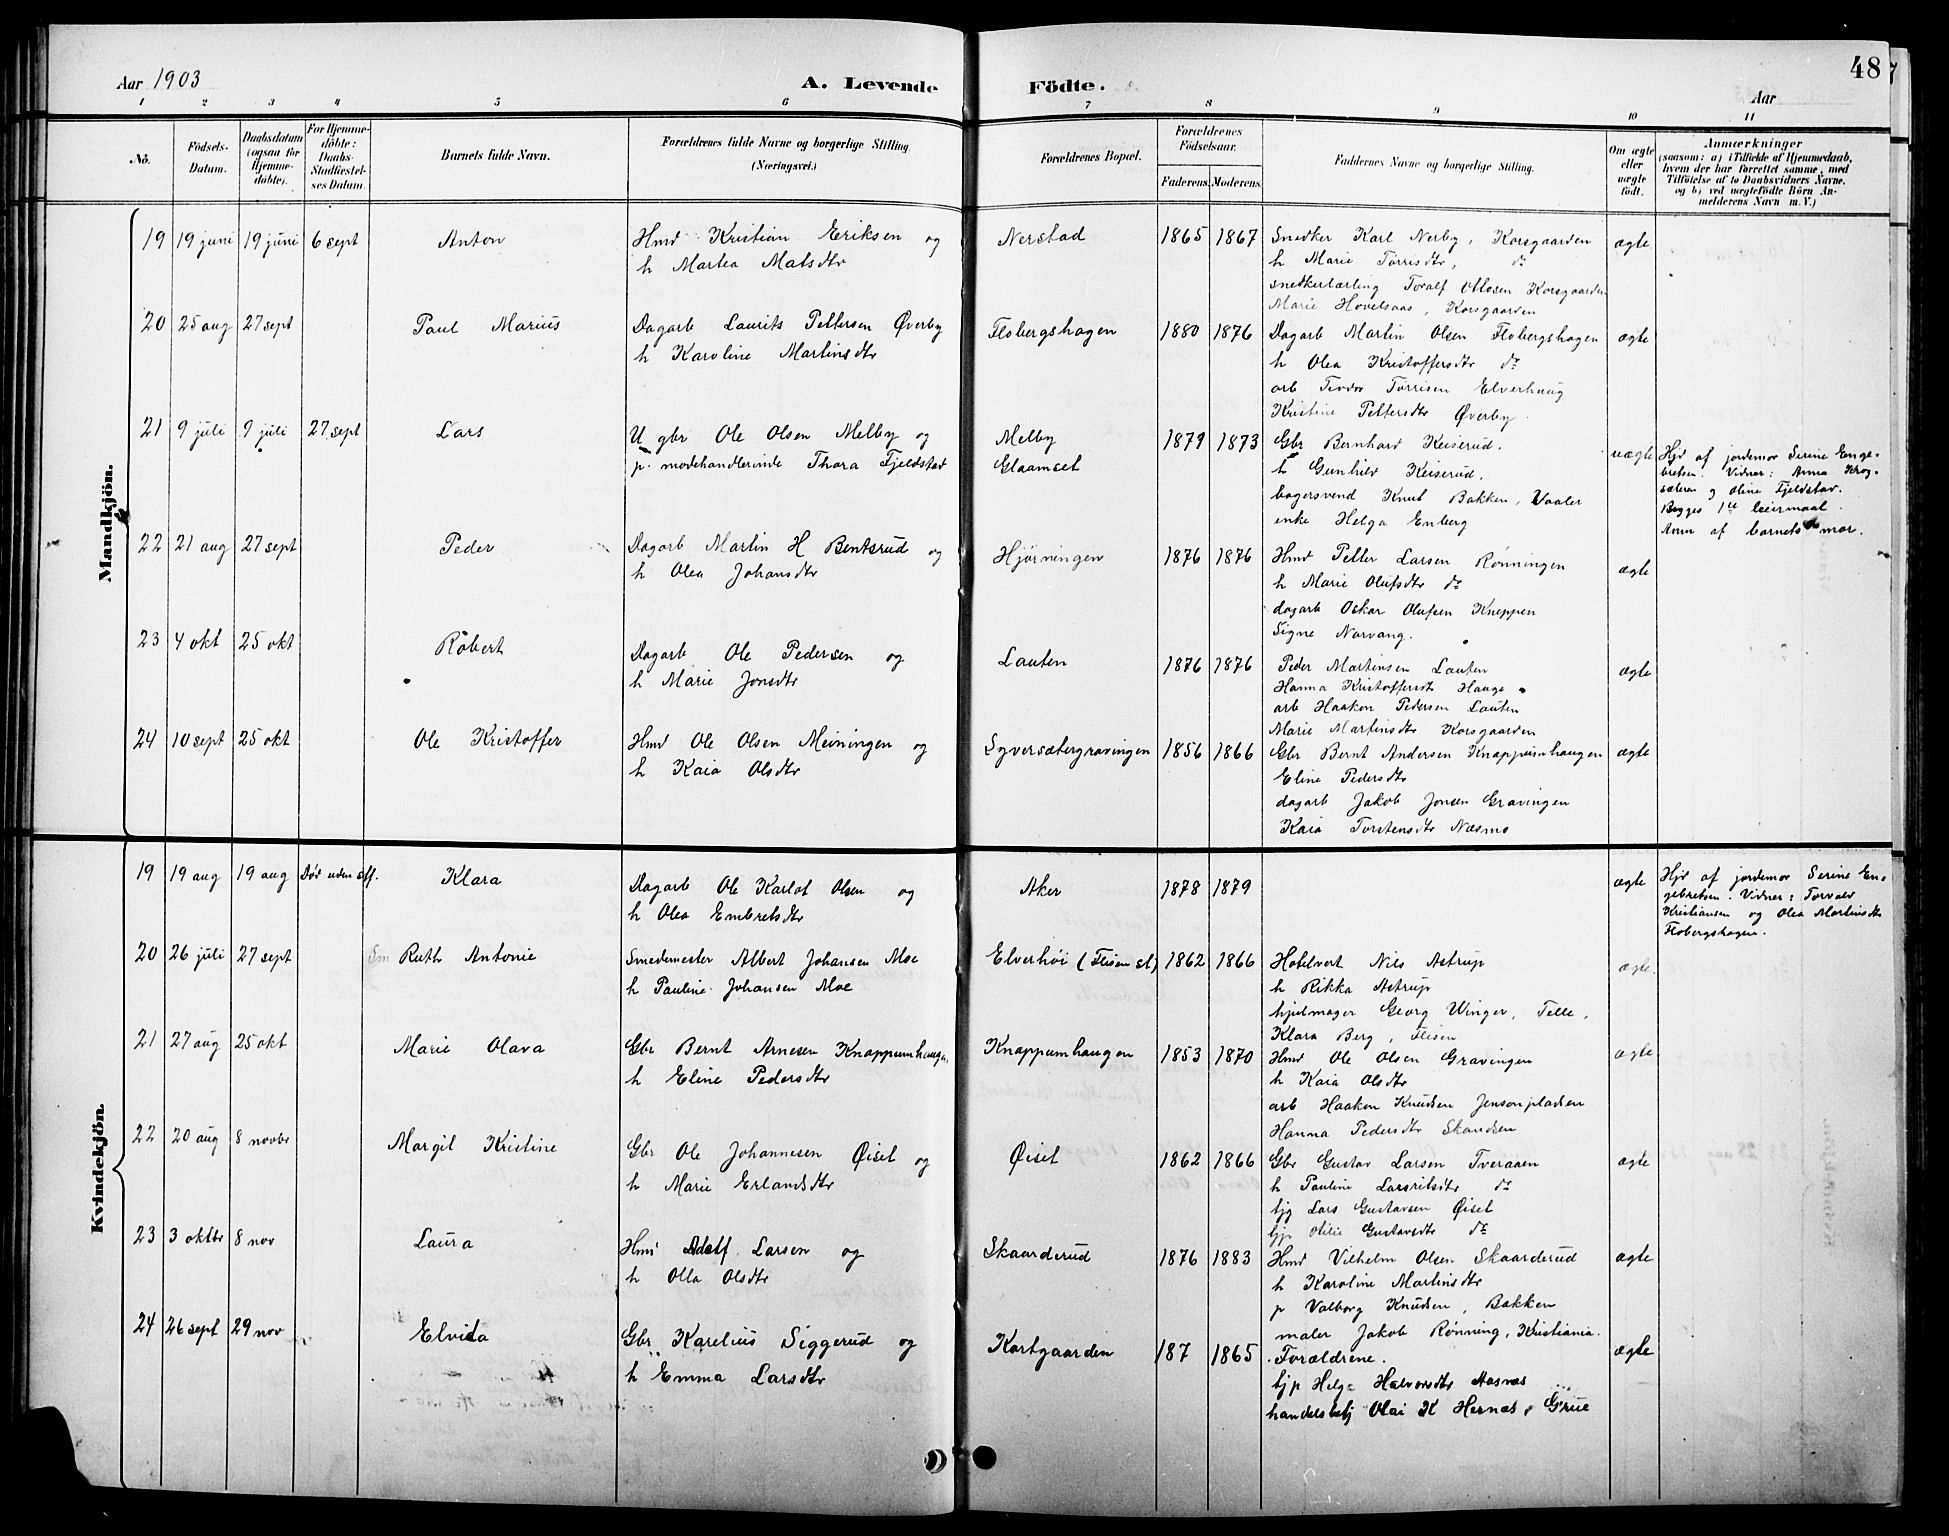 Aar 1903 A. Levende Födte. Aar 48
1 2 3 4 5 6 7 8 9 10 11
No. Födsels-Datum. Daabsdatum (ogsaa for Hjemme-döbte). For Hjemme-döbte: Daabs-Stadfæstel-ses Datum. Barnets fulde Navn. Forældrenes fulde Navne og borgerlige Stilling (Næringsvei.) Forældrenes Bopæl. Forældrenes Födselsaar. Faderens. Moderens. Faddernes Navne og borgerlige Stilling. Om ægte eller uægte født. Anmærkninger (saasom: a) i Tilfælde af Hjemmedaab, hvem der har forrettet samme, med Tilföielse af to Daabsvidners Navne, og b) ved uægtefödte Börn An-melderens Navn m. V.)
Mandkjön.
19 19 juni 19 juni 6 sept Anton Hmd Kristian Eriksen og Nerstad 1865 1867 Snedker Karl Nerby, Korsgaarden ægte
h Martea Matsdtr h Marie Tørrisdtr, do
snedkerlærling Toralf Ottosen Korsgaarden
Marie Hovelsaas, Korsgaarden
20 25 aug 27 sept Paul Marius Dagarb Laurits Pettersen Øverby Flobergshagen 1880 1876 Dagarb Martin Olsen Flobergshagen ægte
h Karoline Martinsdtr h Olea Kristoffersdtr do
arb Teodor Tørrisen Elverhaug
Kristine Pettersdtr Øverby.
21 9 juli 9 juli 27 sept Lars U gbr Ole Olsen Melby og Melby 1879 1873 Gbr Bernhard Keiserud. uægte Hjd af jordemor Serine Enge-
p. modehandlerinde Thora Fjeldstad Glaamset h Gunhild Keiserud, bretsen. Vidner: Anna Krog-
bagersvend Knut Bakken, Vaaler sæteren og Oline Fjeldstad.
enke Helga Enberg Begges 1te leiermaal.
Anm af barnets mor.
22 21 aug 27 sept Peder Dagarb Martin H Bentsrud og Hjørningen 1876 1876 Hmd Petter Larsen Rønningen ægte
h Olea Johansdtr h Marie Olufsdtr do
dagarb Oskar Olufsen Kneppen
Signe Norvang.
23 4 okt 25 okt Robert Dagarb Ole Pedersen og Lauten 1876 1876 Peder Martinsen Lauten ægte
h Marie Jonsdtr Hanna Kristoffersdtr Hauge
arb Haakon Pedersen Lauten
Marie Martinsdtr Korsgaarden
24 10 sept 25 okt Ole Kristoffer Hmd Ole Olsen Meiningen og Syversætergravingen 1856 1866 Gbr Bernt Andersen Knappumhaugen ægte
h Kaia Olsdtr Eline Pedersdtr
dagarb Jakob Jonsen Gravingen
Kaia Torstensdtr Næsmo
Kvindekjön.
19 19 aug 19 aug Død uden stf. Klara Dagarb Ole Karlot Olsen og Aker 1878 1879 ægte Hjd af jordemor Serine En-
h Olea Embretsdtr gebretsen. Vidner: Torvald
Kristiansen og Olea Martinsdtr
Flobergshagen.
20 26 juli 27 sept Ruth Antonie Smedemester Albert Johansen Moe Elverhöi (Flisen st) 1862 1866 Hotelvert Nils Astrup ægte.
h Pauline Johansen Moe h Rikka Astrup
hjulmager Georg Winger, Telle,
Klara Berg, Flisen
21 27 aug 25 okt Marie Olava Gbr Bernt Arnesen Knappumhaugen Knappumhaugen 1853 1870 Hmd Ole Olsen Gravingen ægte
h Eline Pedersdtr h Kaia Olsdtr
arb Haakon Knudsen Jensonpladsen
Hanna Pedersdtr Skandsen
22 20 aug 8 novbr Margit Kristine Gbr Ole Johannesen Øiset og Øiset 1862 1866 Gbr Gustav Larsen Tveraaen ægte
h Marie Erlandsdtr h Pauline Lauritsdtr do
bjg Lars Gustavsen Øiset
bjp Otilie Gustavsdtr do
23 3 oktbr 8 nov Laura Hmd Adolf Larsen og Skaarderud 1876 1883 Hmd Vilhelm Olsen Skaarderud ægte
h Olla Olsdtr h Karoline Martinsdtr
p Valborg Knudsen, Bakken
maler Jakob Rønning, Kristiania.
24 26 sept 29 nov Elvida Gbr Karelius Siggerud og Kortgaarden 187 1865 Forældrene. ægte
h Emma Larsdtr bjp Helga Halvorsdtr Aasnæs
handelsbetj Olai K Hernæs, Grue